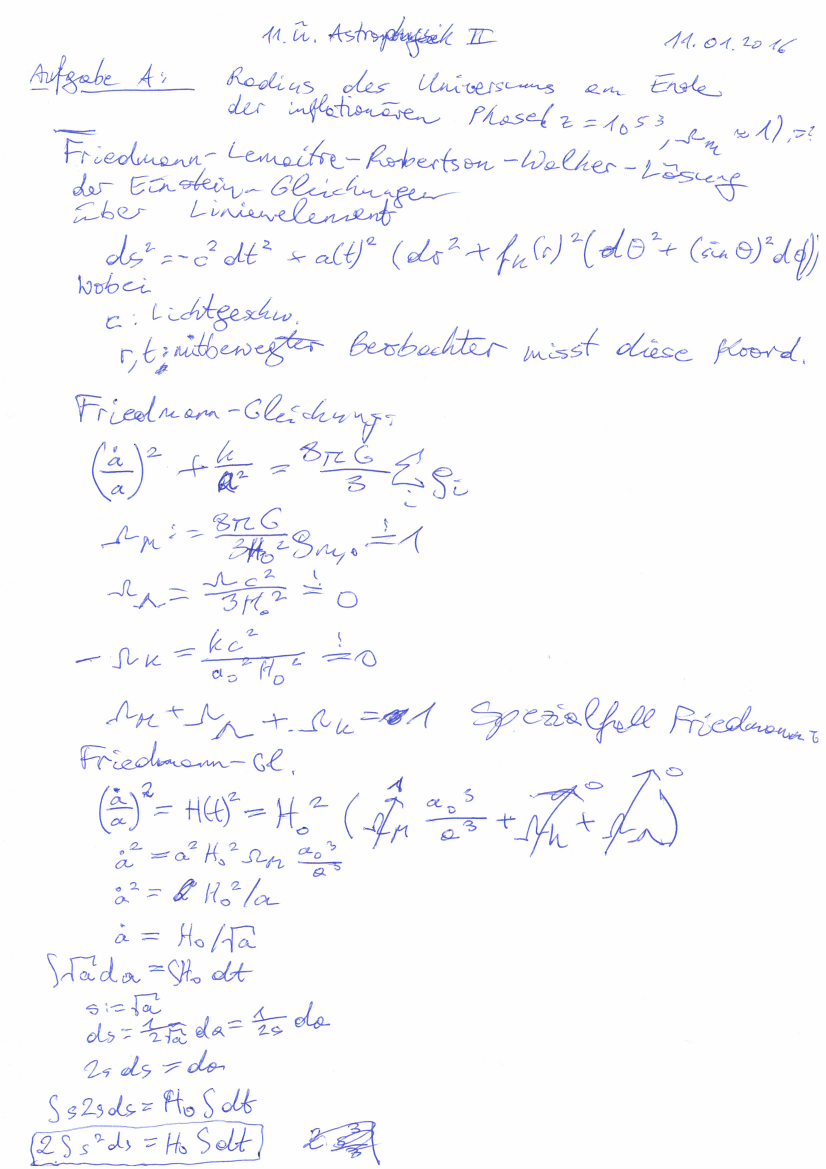 11. Ü. Astrophysik II 11.01.2016
Aufgabe A: Radius des Universums am Ende
der inflationären Phase (z = 1053, Ω_M ≈ 1), =?
Friedmann-Lemaitre-Robertson-Walker-Lösung
der Einstein-Gleichungen
über Linienelement
ds² = -c² dt² + a(t)² (dr² + f_k(r)² (dθ² + (sin θ)² dφ))
wobei
c: Lichtgeschw.
r, t: mitbewegter Beobachter misst diese Koord.
Friedmann-Gleichung:
(ȧ/a)² + k/a² = 8πG/3 Σ_i ρ_i
Ω_M := 8πG/3H₀² ρ_M,0 =! 1
Ω_Λ = Λc²/3H₀² =! 0
- Ω_k = kc²/a₀²H₀² =! 0
Ω_M + Ω_Λ + Ω_k = 1 Spezialfall Friedmann-
Friedmann-Gl.
(ȧ/a)² = H(t)² = H₀² (Ω_M a₀³/a³ + Ω_k + Ω_Λ) 1 0 0
ȧ² = a² H₀² Ω_M a₀³/a³
ȧ² = H₀²/a
ȧ = H₀/√a
∫√a da = ∫H₀ dt
s := √a
ds = 1/2√a da = 1/2s da
2s ds = da
∫s 2s ds = H₀ ∫dt
2∫s² ds = H₀ ∫dt